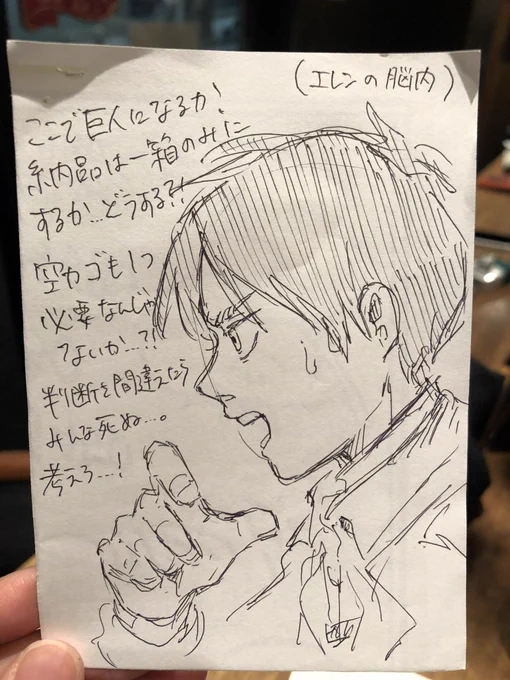 (エレンの脳内)
ここで巨人になるか!
納品は一箱のみに
するか…どうする!!
空カゴも1つ
必要なんじゃ
ないか…?!
判断を間違えたら
みんな死ぬ…。
考えろ…!